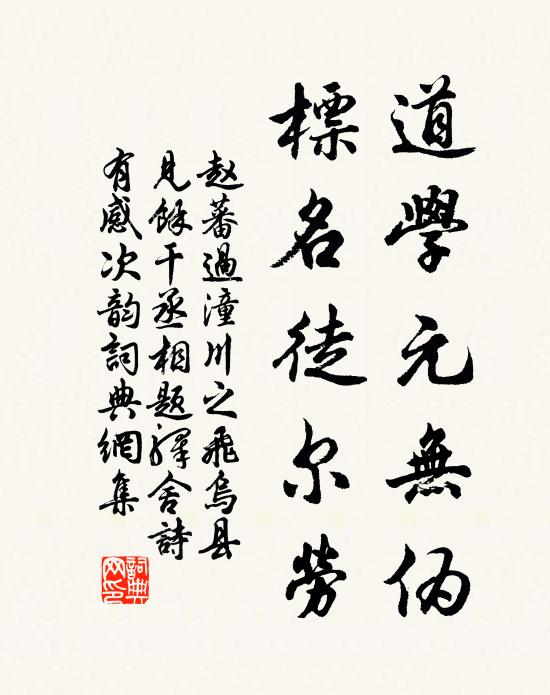 道學元無伪
標名徒尔勞
赵蕃過潼川之飛烏县
見餘干丞相題驛舍詩
有感次韵詞典網集
詞典网印